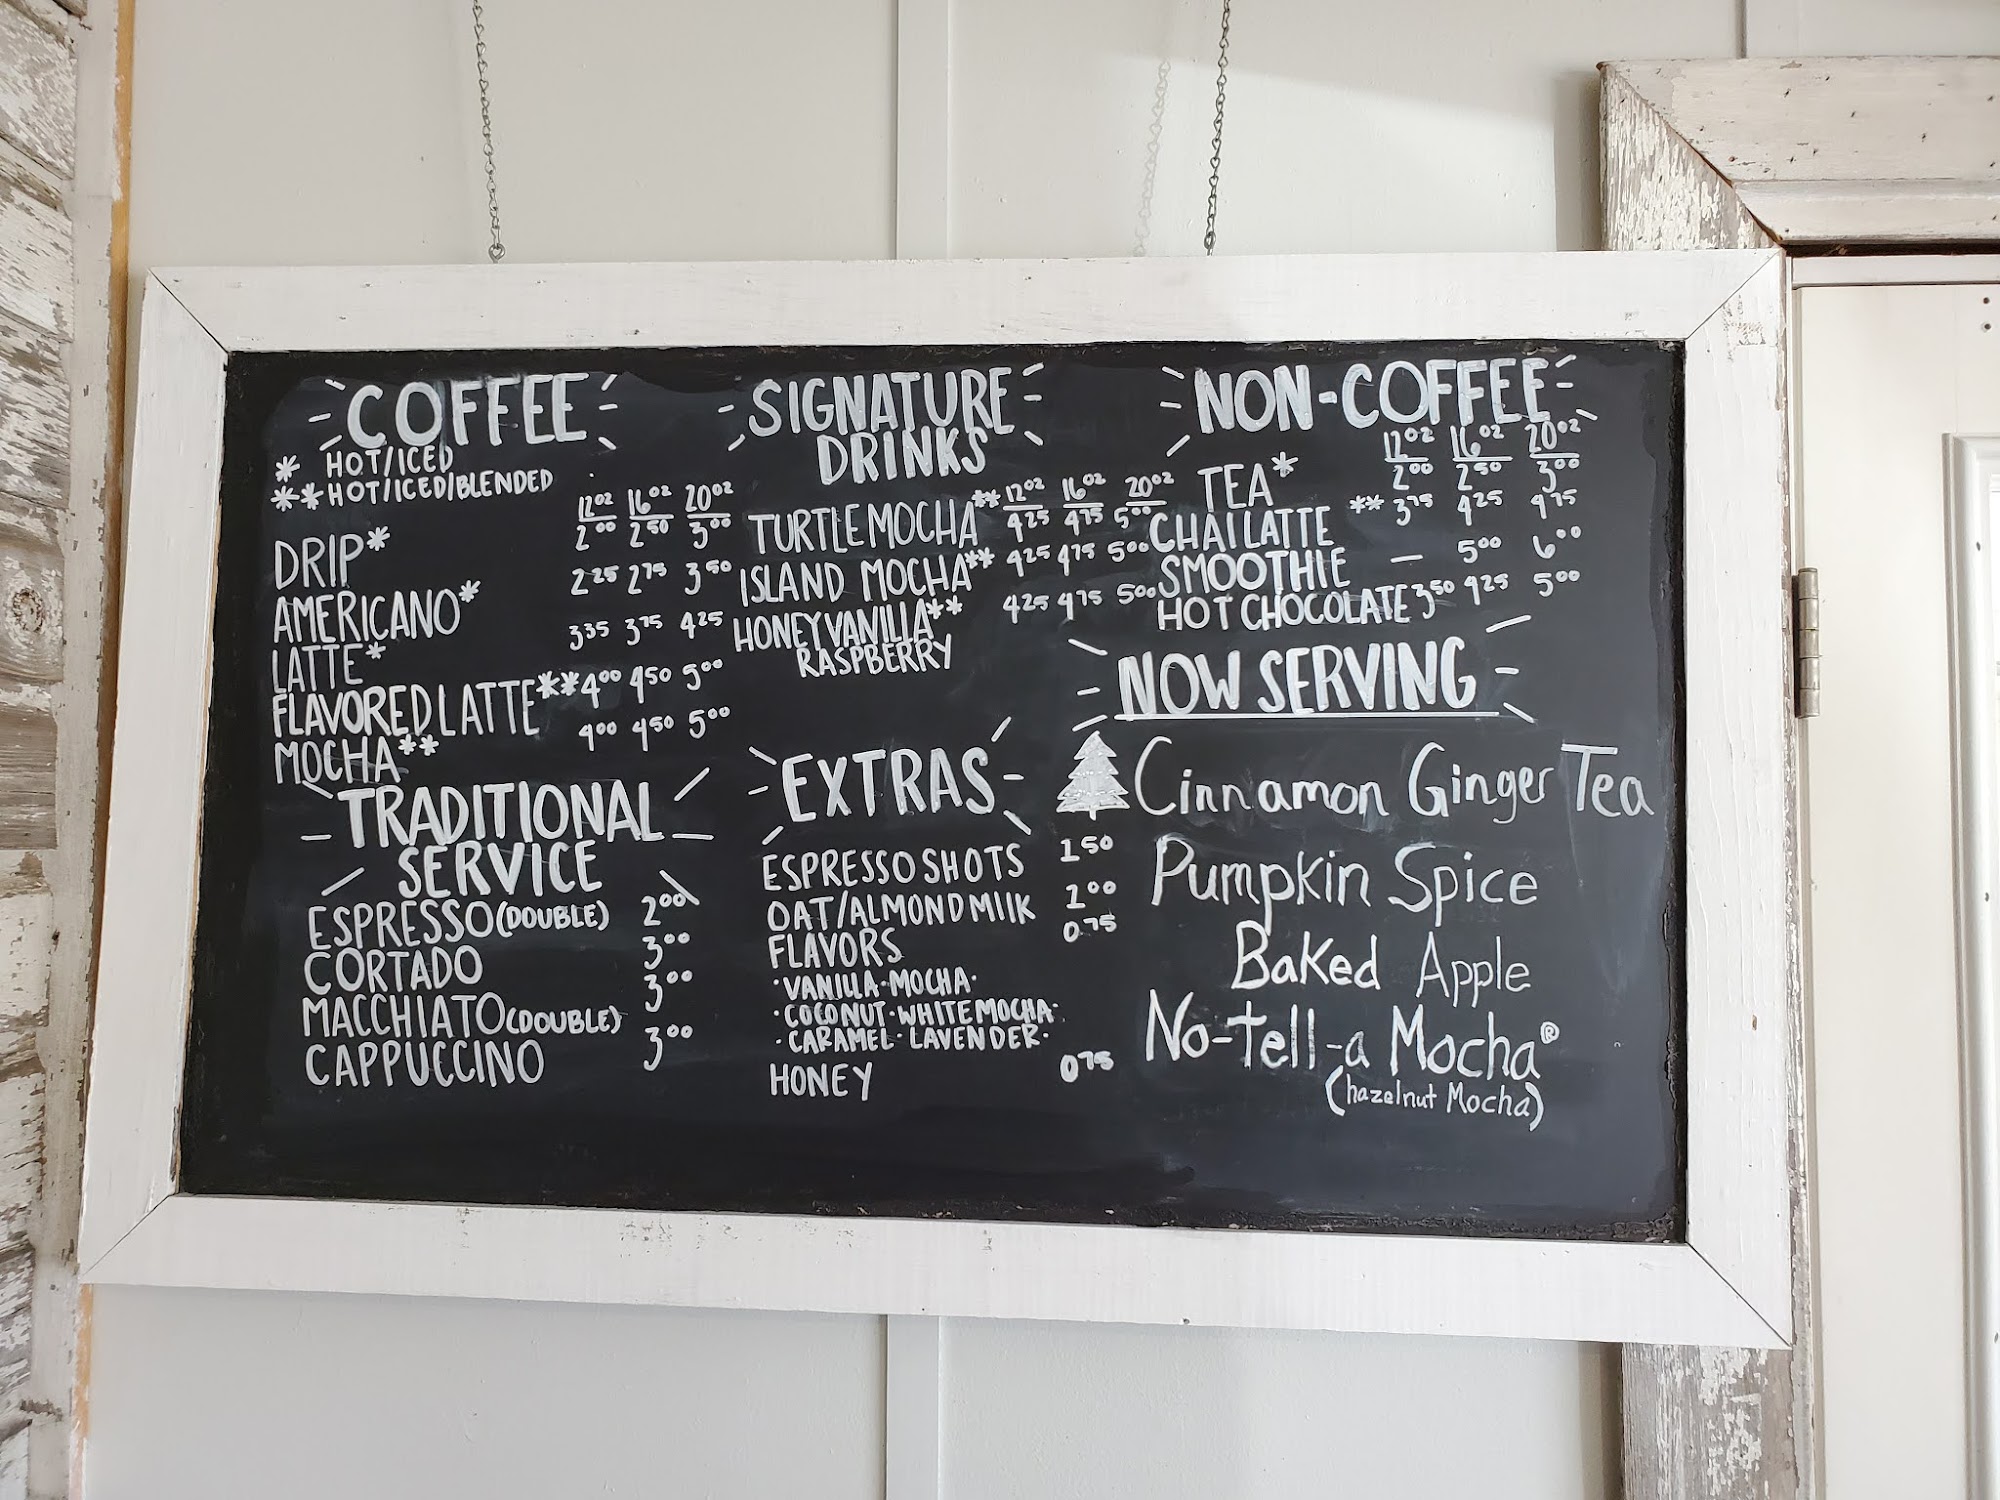 COFFEE
* HOT/ICED
** HOT/ICED/BLENDED
12oz 16oz 20oz
DRIP* 2.00 2.50 3.00
AMERICANO* 2.25 2.75 3.50
LATTE* 3.35 3.75 4.25
FLAVORED LATTE** 4.00 4.50 5.00
MOCHA** 4.00 4.50 5.00
TRADITIONAL
SERVICE
ESPRESSO (DOUBLE) 2.00
CORTADO 3.00
MACCHIATO (DOUBLE) 3.00
CAPPUCCINO 3.00
SIGNATURE
DRINKS
12oz 16oz 20oz
TURTLE MOCHA** 4.25 4.75 5.00
ISLAND MOCHA** 4.25 4.75 5.00
HONEY VANILLA** 4.25 4.75 5.00
RASPBERRY
EXTRAS
ESPRESSO SHOTS 1.50
OAT/ALMOND MILK 1.00
FLAVORS 0.75
· VANILLA · MOCHA ·
· COCONUT · WHITE MOCHA ·
· CARAMEL · LAVENDER ·
HONEY 0.75
NON-COFFEE
12oz 16oz 20oz
TEA* 2.00 2.50 3.00
CHAI LATTE ** 3.75 4.25 4.75
SMOOTHIE — 5.00 6.00
HOT CHOCOLATE 3.50 4.25 5.00
NOW SERVING
Cinnamon Ginger Tea
Pumpkin Spice
Baked Apple
No-tell-a Mocha®
(hazelnut Mocha)